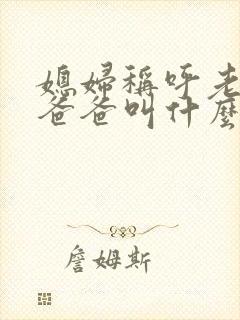 媳婦稱呼老
爸爸叫什麼
詹姆斯